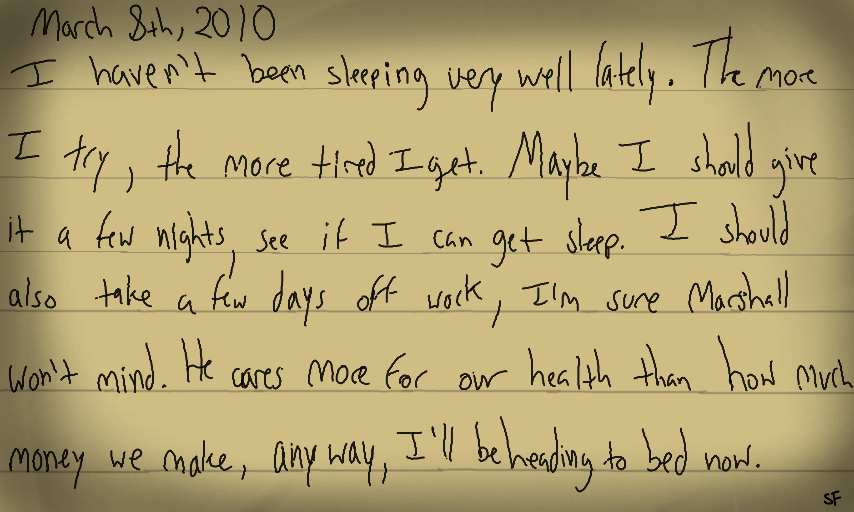 March 8th, 2010
I haven't been sleeping very well lately. The more
I try, the more tired I get. Maybe I should give
it a few nights, see if I can get sleep. I should
also take a few days off work, I'm sure Marshall
won't mind. He cares more for our health than how much
money we make, any way, I'll be heading to bed now.
SF